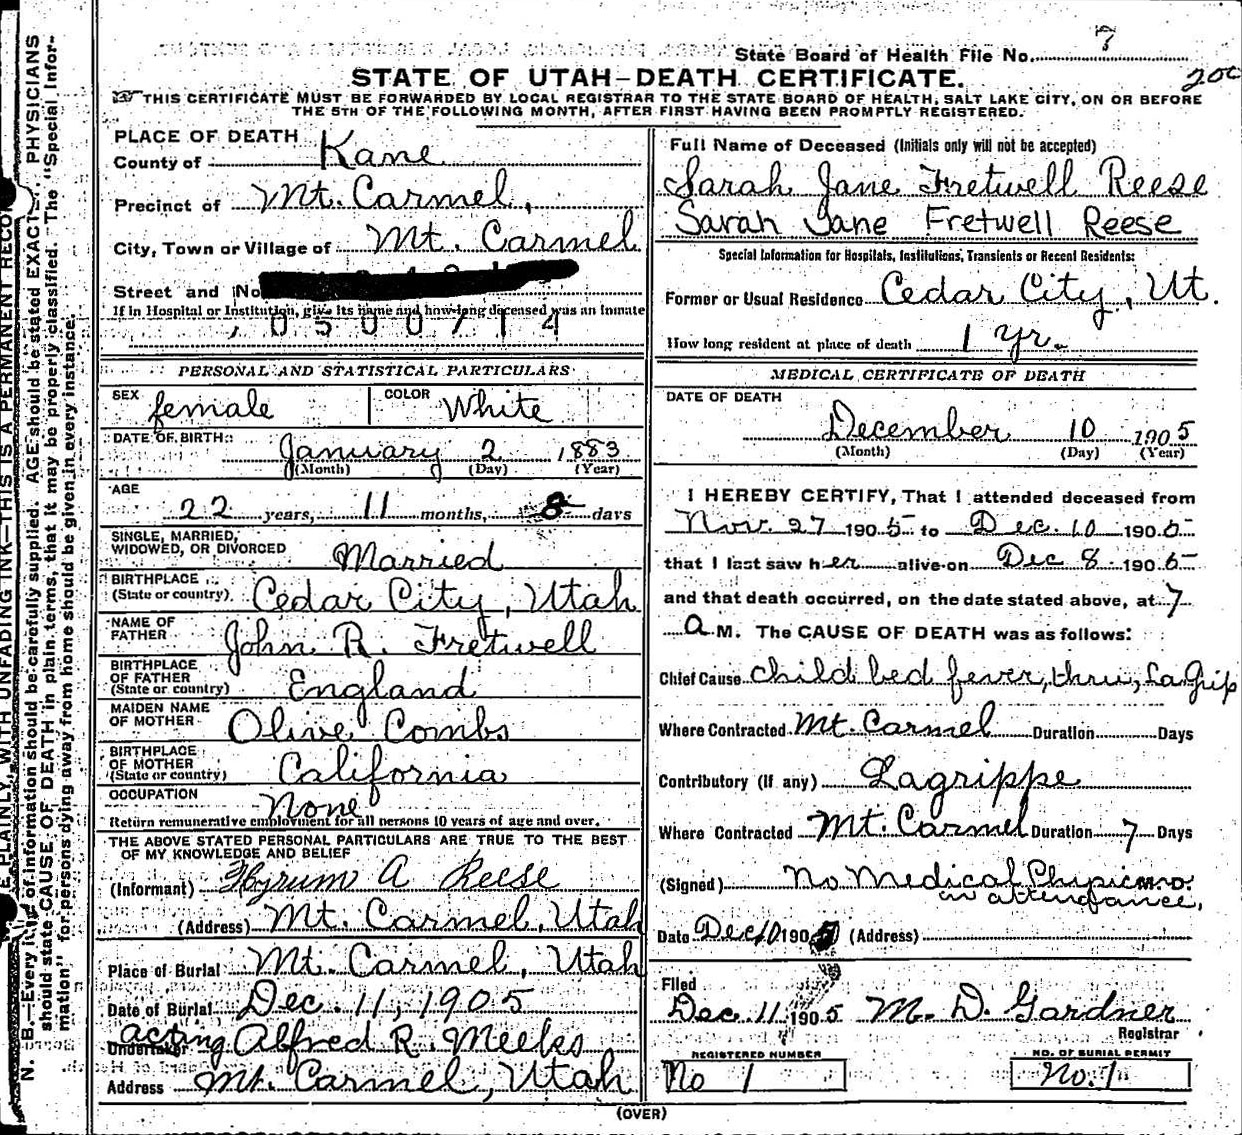 State Board of Health File No. 7
200
STATE OF UTAH—DEATH CERTIFICATE.
THIS CERTIFICATE MUST BE FORWARDED BY LOCAL REGISTRAR TO THE STATE BOARD OF HEALTH, SALT LAKE CITY, ON OR BEFORE
THE 5TH OF THE FOLLOWING MONTH, AFTER FIRST HAVING BEEN PROMPTLY REGISTERED.
PLACE OF DEATH
County of Kane
Precinct of Mt. Carmel,
City, Town or Village of Mt. Carmel
Street and No
If in Hospital or Institution, give its name and how long deceased was an inmate
0500714
PERSONAL AND STATISTICAL PARTICULARS
SEX female COLOR White
DATE OF BIRTH January 2 1883
(Month) (Day) (Year)
AGE
22 years, 11 months, 8 days
SINGLE, MARRIED,
WIDOWED, OR DIVORCED Married
BIRTHPLACE
(State or country) Cedar City, Utah
NAME OF
FATHER John R. Fretwell
BIRTHPLACE
OF FATHER
(State or country) England
MAIDEN NAME
OF MOTHER Olive Combs
BIRTHPLACE
OF MOTHER
(State or country) California
OCCUPATION None
Return remunerative employment for all persons 10 years of age and over.
THE ABOVE STATED PERSONAL PARTICULARS ARE TRUE TO THE BEST
OF MY KNOWLEDGE AND BELIEF
(Informant) Hyrum A Reese
(Address) Mt. Carmel, Utah
Place of Burial Mt. Carmel, Utah
Date of Burial Dec. 11, 1905
acting
Undertaker Alfred R. Meeks
Address Mt. Carmel, Utah
Full Name of Deceased (Initials only will not be accepted)
Sarah Jane Fretwell Reese
Sarah Jane Fretwell Reese
Special Information for Hospitals, Institutions, Transients or Recent Residents:
Former or Usual Residence Cedar City, Ut.
How long resident at place of death 1 yr.
MEDICAL CERTIFICATE OF DEATH
DATE OF DEATH
December 10 1905
(Month) (Day) (Year)
I HEREBY CERTIFY, That I attended deceased from
Nov. 27 1905 to Dec. 10 1905
that I last saw her alive on Dec 8 1905
and that death occurred, on the date stated above, at 7
a M. The CAUSE OF DEATH was as follows:
Chief Cause child bed fever, thru, LaGrip
Where Contracted Mt. Carmel Duration Days
Contributory (If any) Lagrippe
Where Contracted Mt. Carmel Duration 7 Days
(Signed) No Medical M.D.
in attendance,
Date Dec 10 1905 (Address)
Filed
Dec. 11 1905 M. D. Gardner
Registrar
REGISTERED NUMBER
No 1
NO. OF BURIAL PERMIT
No. 1
(OVER)
E PLAINLY, WITH UNFADING INK—THIS IS A PERMANENT RECO
N. B.—Every item of information should be carefully supplied. AGE should be stated EXACTLY. PHYSICIANS
should state CAUSE OF DEATH in plain terms, that it may be properly classified. The "Special Infor-
mation" for persons dying away from home should be given in every instance.